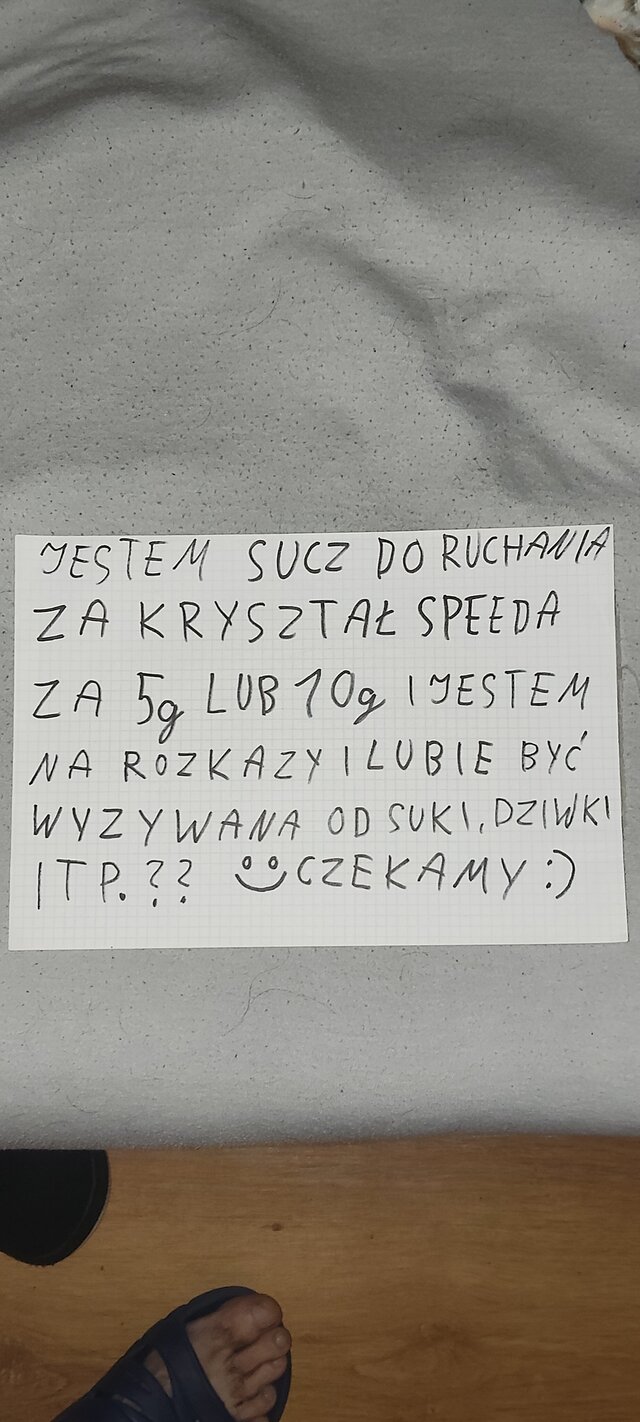 JESTEM SUCZ DO RUCHANIA
ZA KRYSZTAŁ SPEEDA
ZA 5g LUB 10g I JESTEM
NA ROZKAZY I LUBIE BYĆ
WYZYWANA OD SUKI, DZIWKI
ITP. ?? CZEKAMY :)